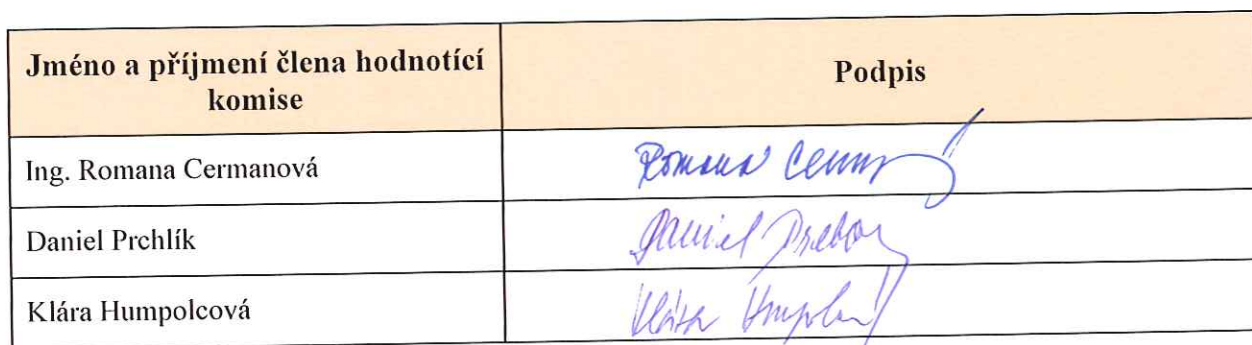 Jméno a příjmení člena hodnotící
komise
Podpis
Ing. Romana Cermanová
Romana
Daniel Prchlík
Daniel
Klára Humpolcová
Klára